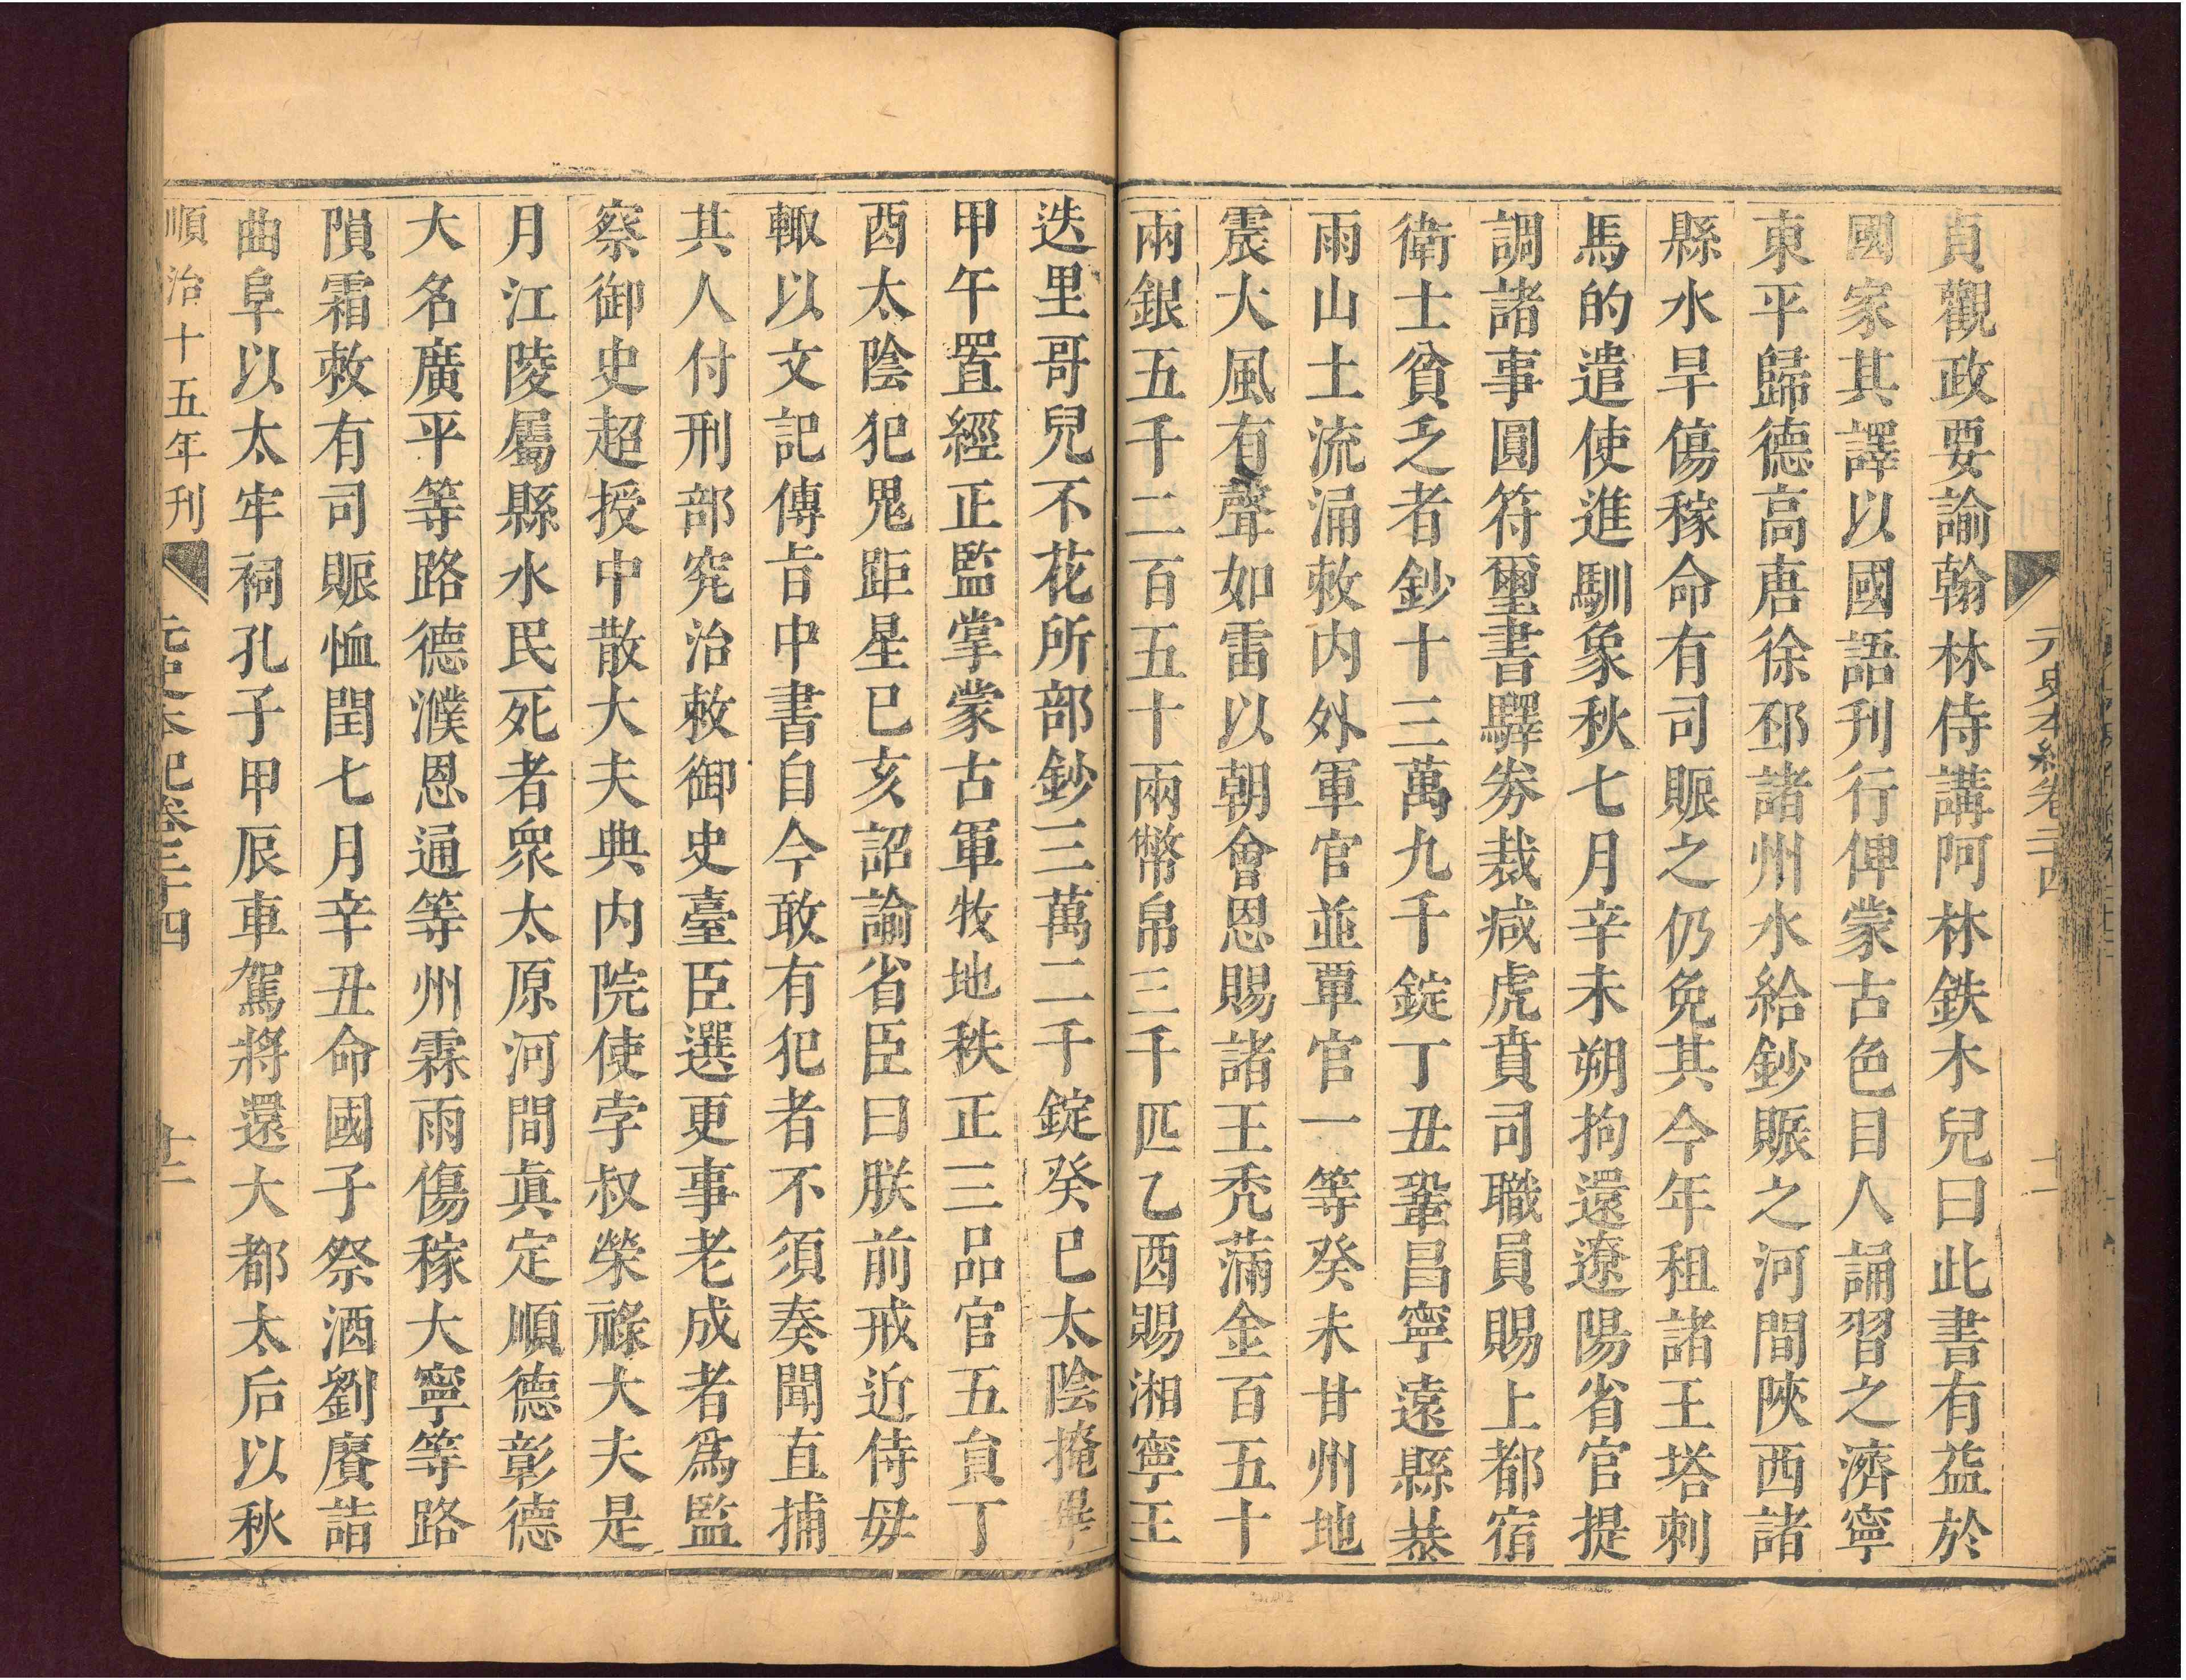 元史本紀卷二十四
十一
貞觀政要諭翰林侍講阿林鉄木兒曰此書有益於
國家其譯以國語刊行俾蒙古色目人誦習之濟寧
東平歸德高唐徐邳諸州水給鈔賑之河間陜西諸
縣水旱傷稼命有司賑之仍免其今年租諸王塔刺
馬的遣使進馴象秋七月辛未朔拘還遼陽省官提
調諸事圓符璽書驛券裁减虎賁司職員賜上都宿
衛士貧乏者鈔十三萬九千錠丁丑鞏昌寧遠縣㬥
雨山土流涌敕内外軍官並覃官一等癸未甘州地
震大風有聲如雷以朝會恩賜諸王禿滿金百五十
兩銀五千二百五十兩幣帛三千匹乙酉賜湘寧王
迭里哥兒不花所部鈔三萬二千錠癸巳太陰掩畢
甲午置經正監掌蒙古軍牧地秩正三品官五員丁
酉太陰犯鬼距星已亥詔諭省臣曰朕前戒近侍毋
輙以文記傳㫖中書自今敢有犯者不須奏聞直捕
其人付刑部究治敕御史臺臣選更事老成者爲監
察御史超授中散大夫典内院使孛叔榮祿大夫是
月江陵屬縣水民死者衆太原河間眞定順德彰德
大名廣平等路德濮恩通等州霖雨傷稼大寧等路
隕霜敕有司賑恤閏七月辛丑命國子祭酒劉賡詣
曲阜以太牢祠孔子甲辰車駕將還大都太后以秋
順治十五年刊
元史本紀卷二十四
十二